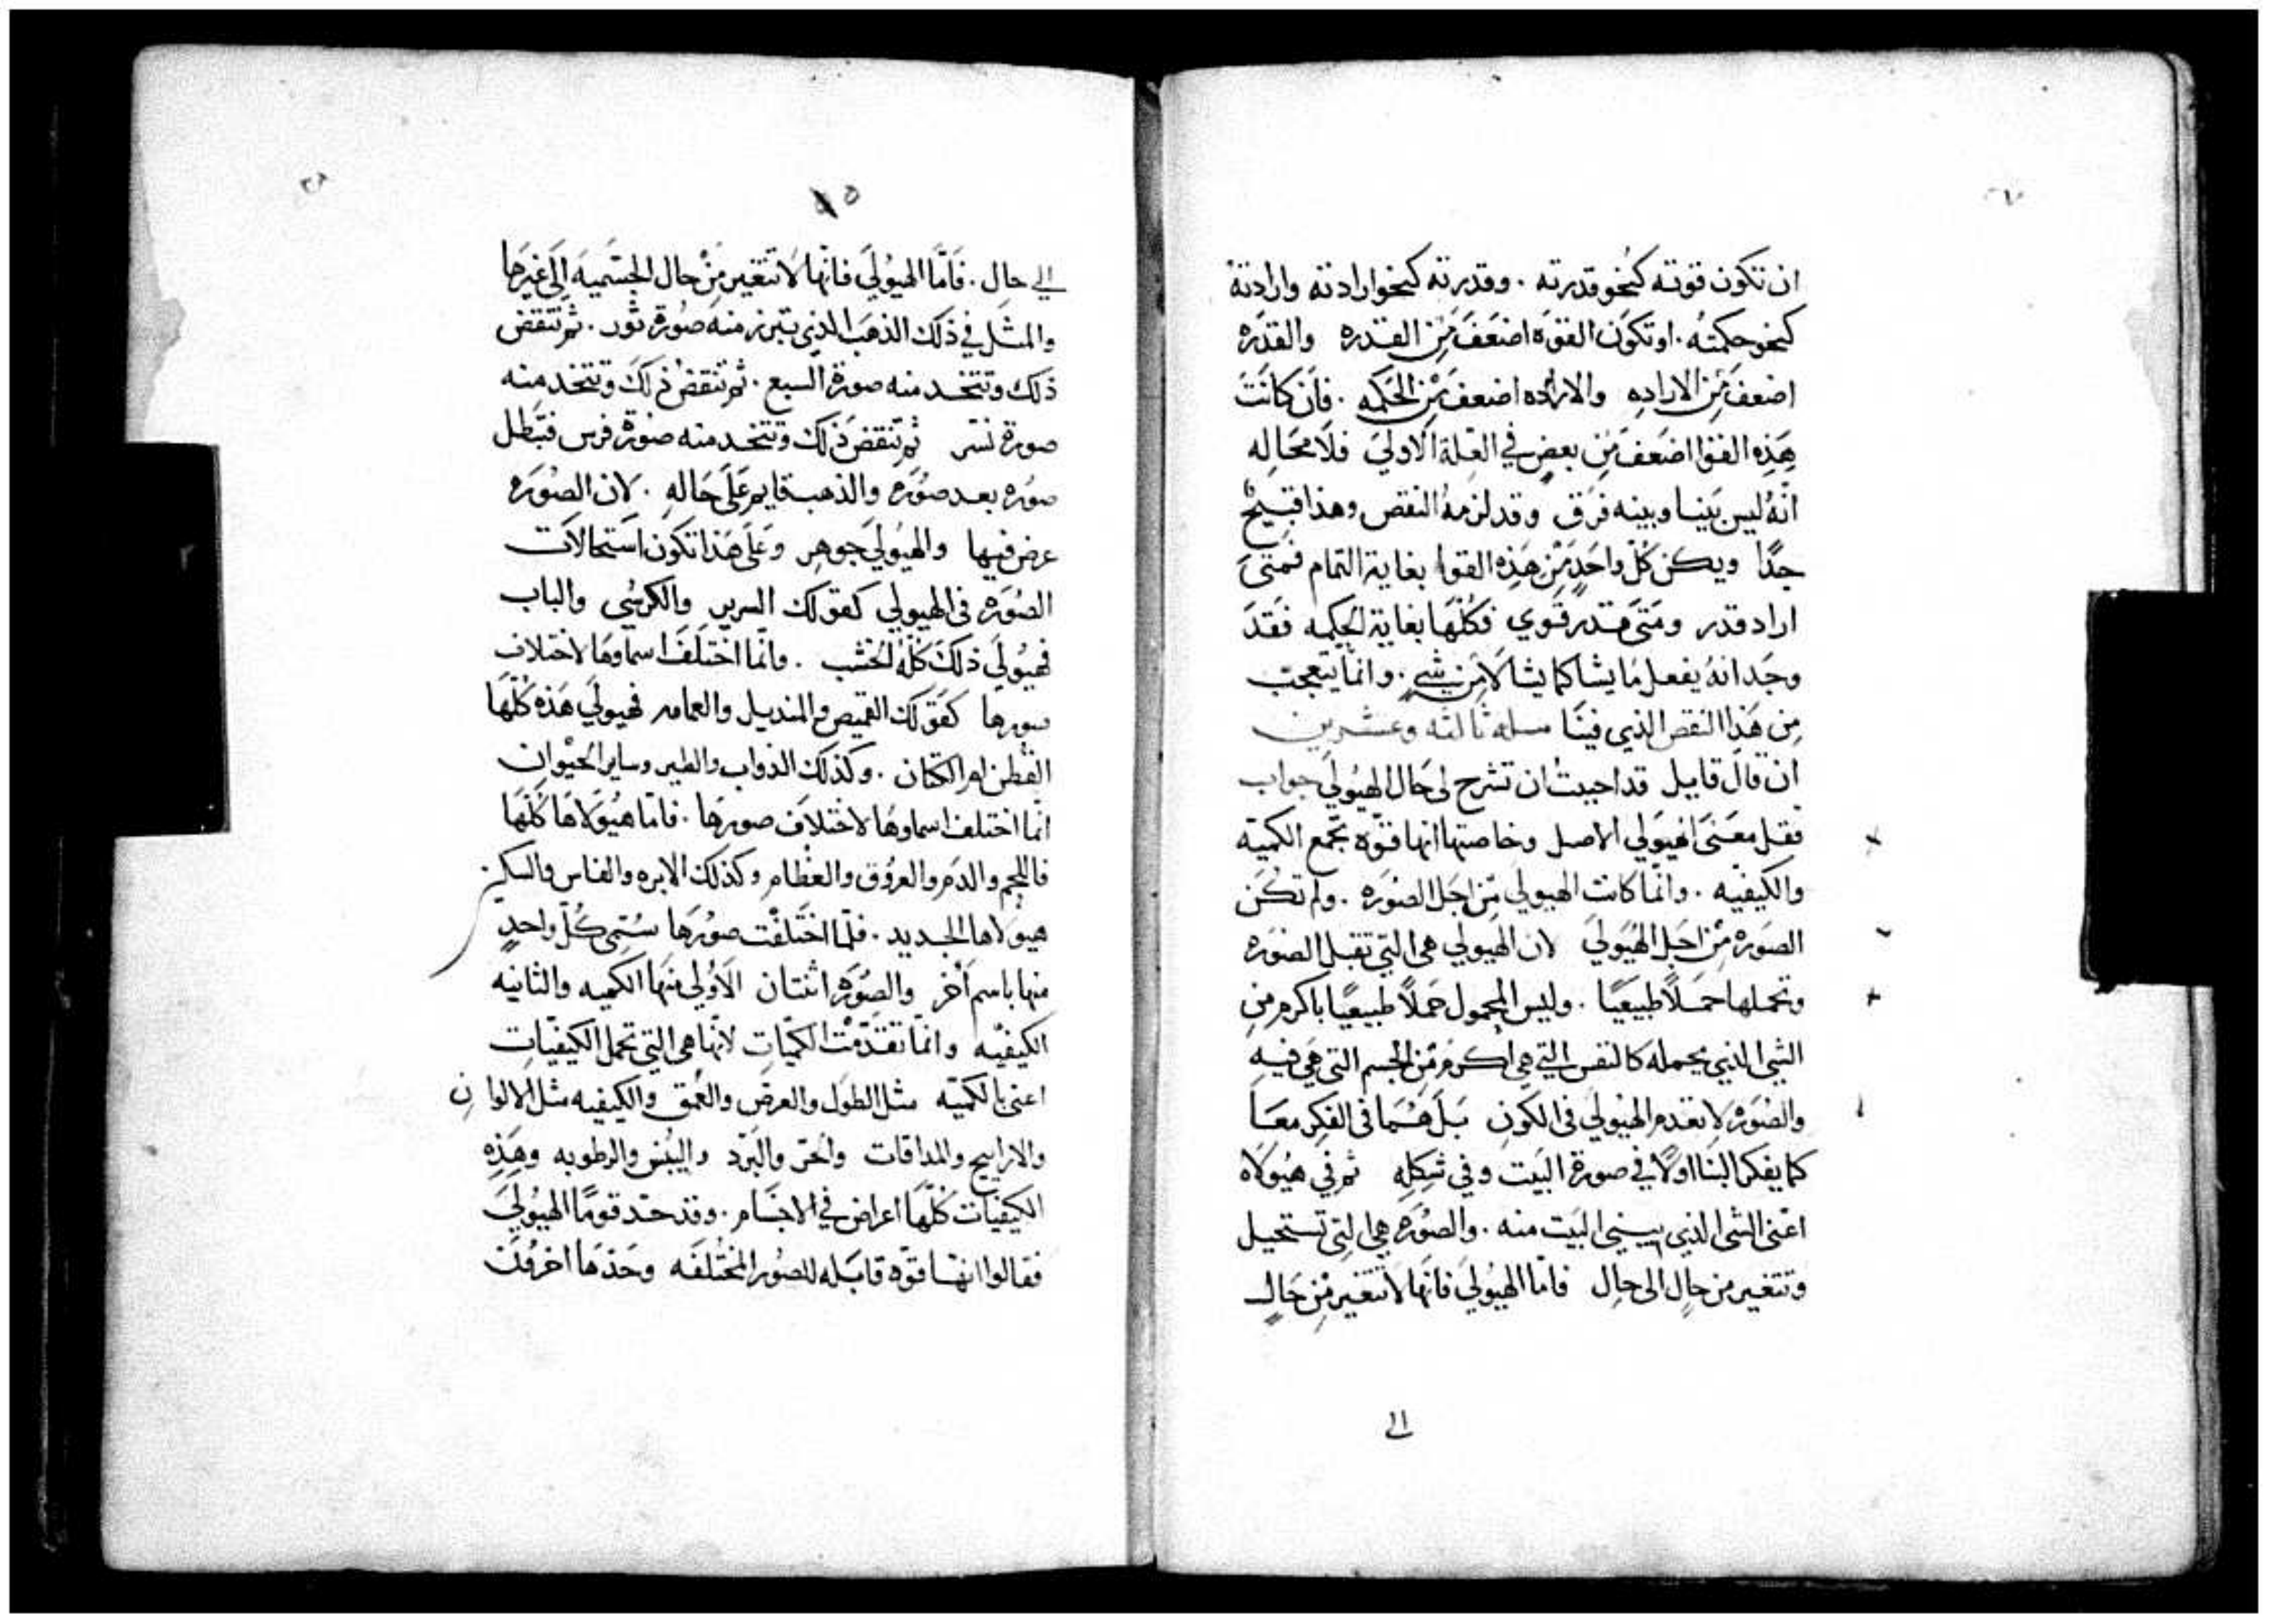 ان تكون قوته كنحو قدرته . وقدرته كنحو ارادته وارادته
كنحو حكمته . او تكون القوة اضعف من القدره والقدره
اضعف من الاراده والاراده اضعف من الحكمه . فان كانت
هذه القوا اضعف من بعض في العلة الاولي فلا محاله
انه ليس بيننا وبينه فرق وقد لزمه النقص وهذا قبيح
جدا ويكن كل واحد من هذه القوا بغاية التمام فمتى
اراد قدر ومتى قدر قوي فكلها بغاية الحكمه فقد
وجد انه يفعل ما يشا كما يشا لا من شي . وانما يتعجب
من هذا النقص الذي فينا مسله ثالثه وعشرين
ان قال قايل قد احببت ان تشرح لي حال الهيولي جواب
فقل معنى الهيولي الاصل وخاصتها انها قوه تجمع الكميه
والكيفيه . وانما كانت الهيولي من اجل الصوره . ولم تكن
الصوره من اجل الهيولي لان الهيولي هي التي تقبل الصوره
وتحملها حملا طبيعيا . وليس المحمول حملا طبيعيا باكرم من
الشي الذي يحمله كالنفس التي هي اكرم من الجسم التي هي فيه
والصوره لا تقدم الهيولي في الكون بل هما في الفكر معا
كما يفكر البنا اولا في صورة البيت وفي شكله ثم في هيولاه
اعني الشي الذي يبني البيت منه . والصوره هي التي تستحيل
وتتغير من حال الى حال فاما الهيولي فانها لا تتغير من حال
الى
الي حال . فاما الهيولي فانها لا تتغير من حال الجسميه الى غيرها
والمثل في ذلك الذهب الذي تبرز منه صورة ثور . ثم تنقض
ذلك وتتخد منه صورة السبع . ثم تنقض ذلك وتتخد منه
صورة نسر ثم تنقض ذلك وتتخد منه صورة فرس فتبطل
صوره بعد صوره والذهب قايم على حاله . لان الصوره
عرض فيها والهيولي جوهر وعلى هذا تكون استحالات
الصوره في الهيولي كقولك السرير والكرسي والباب
فهيولي ذلك كله الخشب . وانما اختلف اسماوها لاختلاف
صورها كقولك القميص والمنديل والعمامه فهيولي هذه كلها
القطن او الكتان . وكذلك الدواب والطير وساير الحيوان
انما اختلف اسماوها لاختلاف صورها . فاما هيولاها كلها
فاللحم والدم والعروق والعظام وكذلك الابره والفاس والسكين
هيولاها الحديد . فلما اختلفت صورها سمي كل واحد
منها باسم اخر والصوره اثنتان الاولي منها الكميه والثانيه
الكيفيه وانما تقدمت الكميات لانها هي التي تحمل الكيفيات
اعني بالكميه مثل الطول والعرض والعمق والكيفيه مثل الالوان
والاراييح والمداقات والحر والبرد واليبس والرطوبه وهذه
الكيفيات كلها اعراض في الاجسام . وقد حد قوما الهيولي
فقالوا انها قوه قابله للصور المختلفه وحدها اخرون